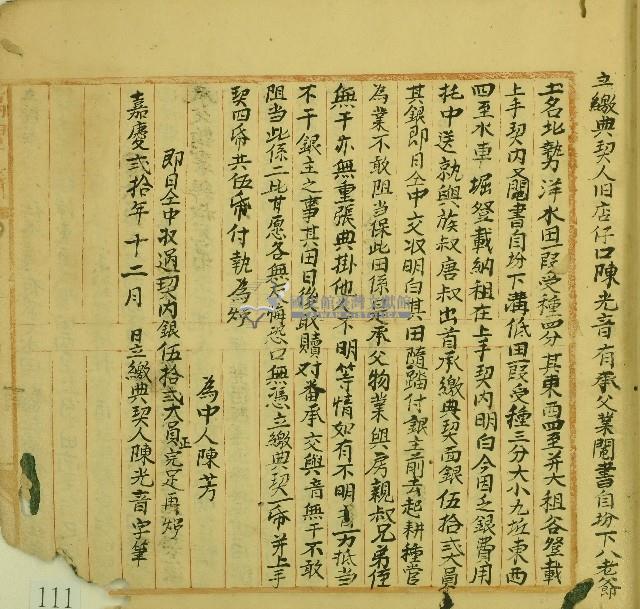 立繳典契人旧店仔口陳光音有承父業鬮書自坋下八老爺
土名北勢洋水田一段受種四分其東西四至并大租谷登載
上手契內又鬮書自坋下溝低田一段受種三分大小九坵東西
四至水車堀登載納租在上手契內明白今因乏銀費用
托中送就與族叔唐叔出首承繳典契面銀伍拾弍大員
其銀即日仝中交收明白其田隨踏付銀主前去起耕種管
為業不敢阻当保此田係承父物業與房親叔兄弟侄
無干亦無重張典掛他人不明等情如有不明音一力抵当
不干銀主之事其田日後取贖对番承交與音無干不敢
阻当此係二比甘愿各無反悔恐口無憑立繳典契一帋并上手
契四帋共伍帋付執為炤
為中人陳芳
即日仝中收過契內銀伍拾弍大員正完足再炤
嘉慶弍拾年十二月 日立繳典契人陳光音字筆
國史館臺灣文獻館
111